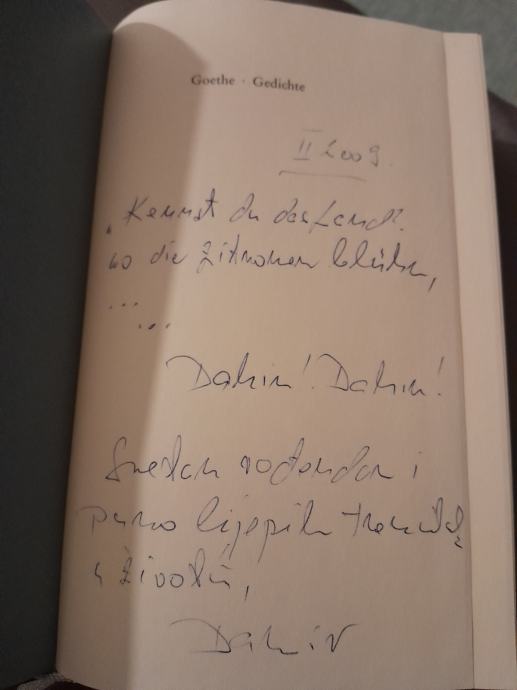 Goethe · Gedichte
II 2009.
„Kennst du das Land?
wo die Zitronen blühn,
...
...
Dahin! Dahin!
Sretan rođendan i
puno lijepih trenutaka
u životu,
Damir